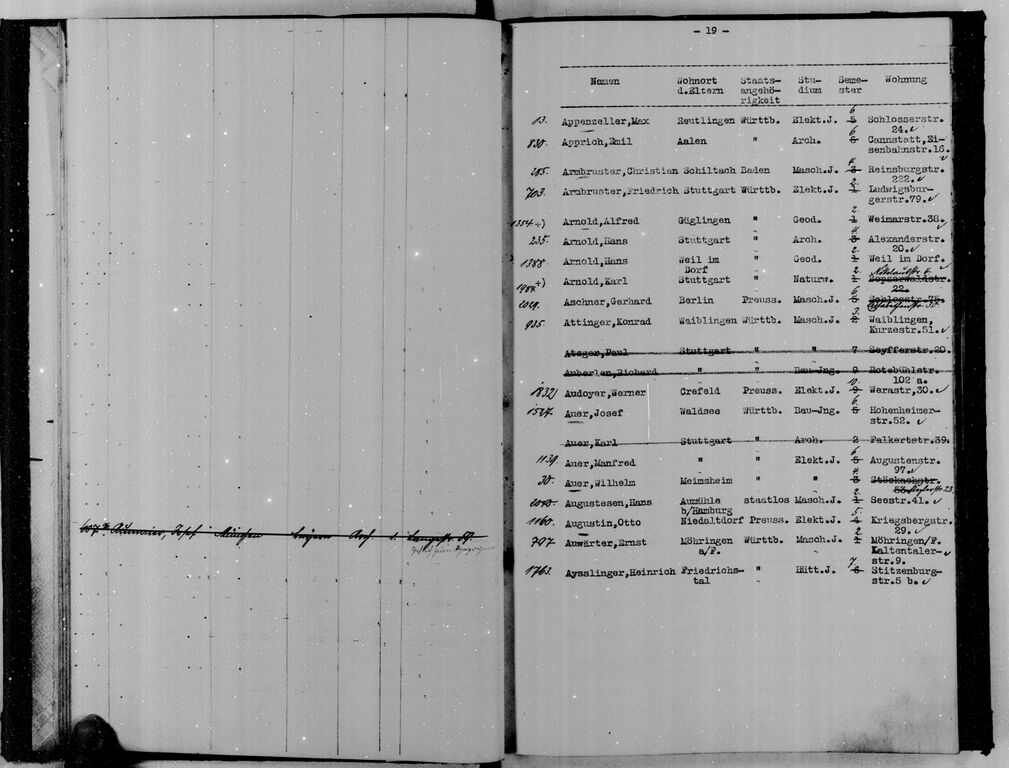 München Bayern Arch
- 19 -
Namen Wohnort Staats- Stu- Seme- Wohnung
d.Eltern angehö- dium ster
rigkeit
6
13. Appenzeller,Max Reutlingen Württb. Elekt.J. 5 Schlosserstr.
24.
6
830. Apprich,Emil Aalen " Arch. 5 Cannstatt,Ei-
senbahnstr.16.
4.
285. Armbruster,Christian Schiltach Baden Masch.J. 3 Reinsburgstr.
222.
2.
703. Armbruster,Friedrich Stuttgart Württb. Elekt.J. 1 Ludwigsbur-
gerstr.79.
2.
1354 +) Arnold,Alfred Güglingen " Geod. 1 Weimarstr.38.
4.
235. Arnold,Hans Stuttgart " Arch. 3 Alexanderstr.
20.
2.
1388. Arnold,Hans Weil im " Geod. 1 Weil im Dorf.
Dorf
2.
1484. +) Arnold,Karl Stuttgart " Naturw. 1
22.
6
2029. Aschner,Gerhard Berlin Preuss. Masch.J. 5 Schlosstr.75.
3.
935. Attinger,Konrad Waiblingen Württb. Masch.J. 2 Waiblingen,
Kurzestr.51.
Atzger,Paul Stuttgart " " 7 Seyfferstr.20.
Auberlen,Richard " " Bau-Jng. 9 Rotebühlstr.
102 a.
10.
1832) Audoyer,Werner Crefeld Preuss. Elekt.J. 9 Werastr,30.
6.
1527. Auer,Josef Waldsee Württb. Bau-Jng. 5 Hohenheimer-
str.52.
Auer,Karl Stuttgart " Arch. 2 Falkertstr.39.
6
1139. Auer,Manfred " " Elekt.J. 5 Augustenstr.
97.
4.
30. Auer,Wilhelm Meimsheim " " 3 Stöckachstr.
53.
2.
2040. Augustesen,Hans Aumühle staatlos Masch.J. 1 Seestr.41.
b/Hamburg
5.
1160. Augustin,Otto Niedaltdorf Preuss. Elekt.J. 4 Kriegsbergstr.
29.
2.
797. Auwärter,Ernst Möhringen Württb. Masch.J. 1 Möhringen/F.
a/F. Kaltentaler-
str.9.
7
1763. Aysslinger,Heinrich Friedrichs- " Hütt.J. 6 Stitzenburg-
tal str.5 b.